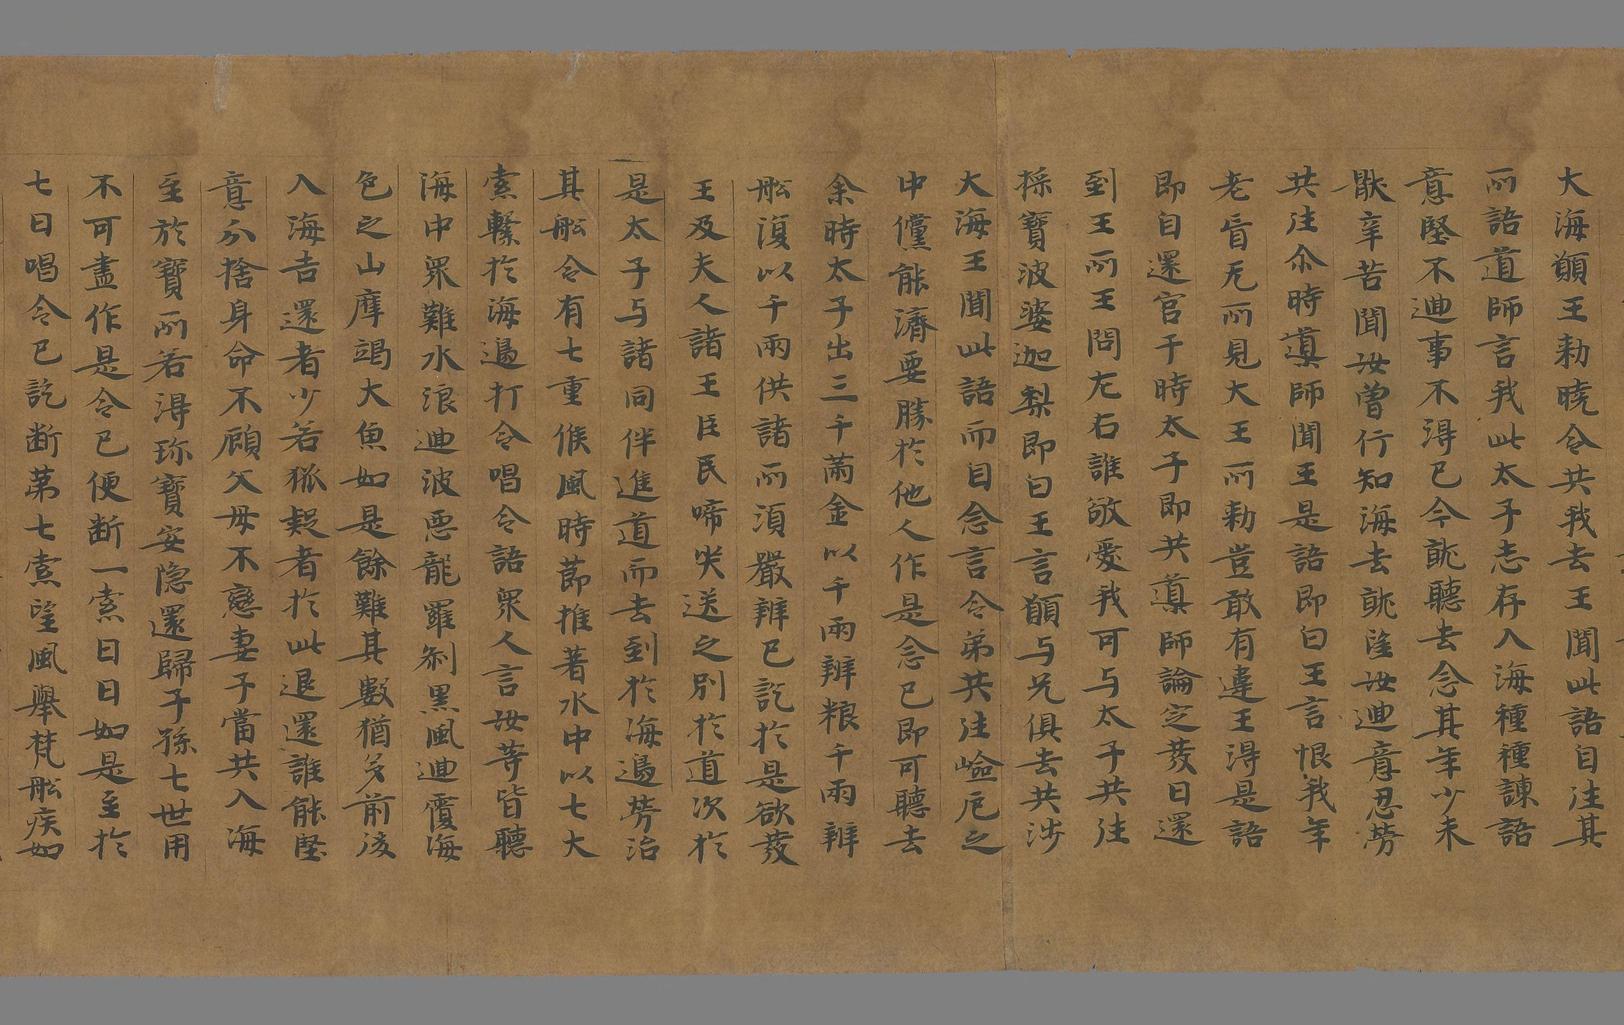 大海願王勅曉令共我去王聞此語自往其
所語道師言我此太子志存入海種種諫語
意堅不迴事不得已今就聽去念其年少未
猒辛苦聞汝曾行知海去就望汝迴意忍勞
共往尒時導師聞王是語即白王言恨我年
老盲无所見大王所勅豈敢有違王得是語
即自還宮于時太子即共導師論定發日還
到王所王問左右誰敬愛我可与太子共往
採寶波婆迦梨即白王言願与兄俱去共涉
大海王聞此語而自念言令弟共往嶮厄之
中儻能濟要勝於他人作是念已即可聽去
余時太子出三千兩金以千兩辦粮千兩辦
舩復以千兩供諸所須嚴辦已訖於是欲發
王及夫人諸王臣民啼哭送之別於道次於
是太子与諸同伴進道而去到於海邊勞治
其舩令有七重候風時節推著水中以七大
索繫於海邊打令唱令語眾人言汝等皆聽
海中眾難水浪迴波惡龍羅剎黑風迴覆海
色之山摩竭大魚如是餘難其數猶多前後
入海吉還者少若狐疑者於此退還誰能堅
意分捨身命不顧父母不戀妻子當共入海
至於寶所若得珎寶安隐還歸子孫七世用
不可盡作是令已便断一索日日如是至於
七日唱令已訖断苐七索望風舉梵舩疾如